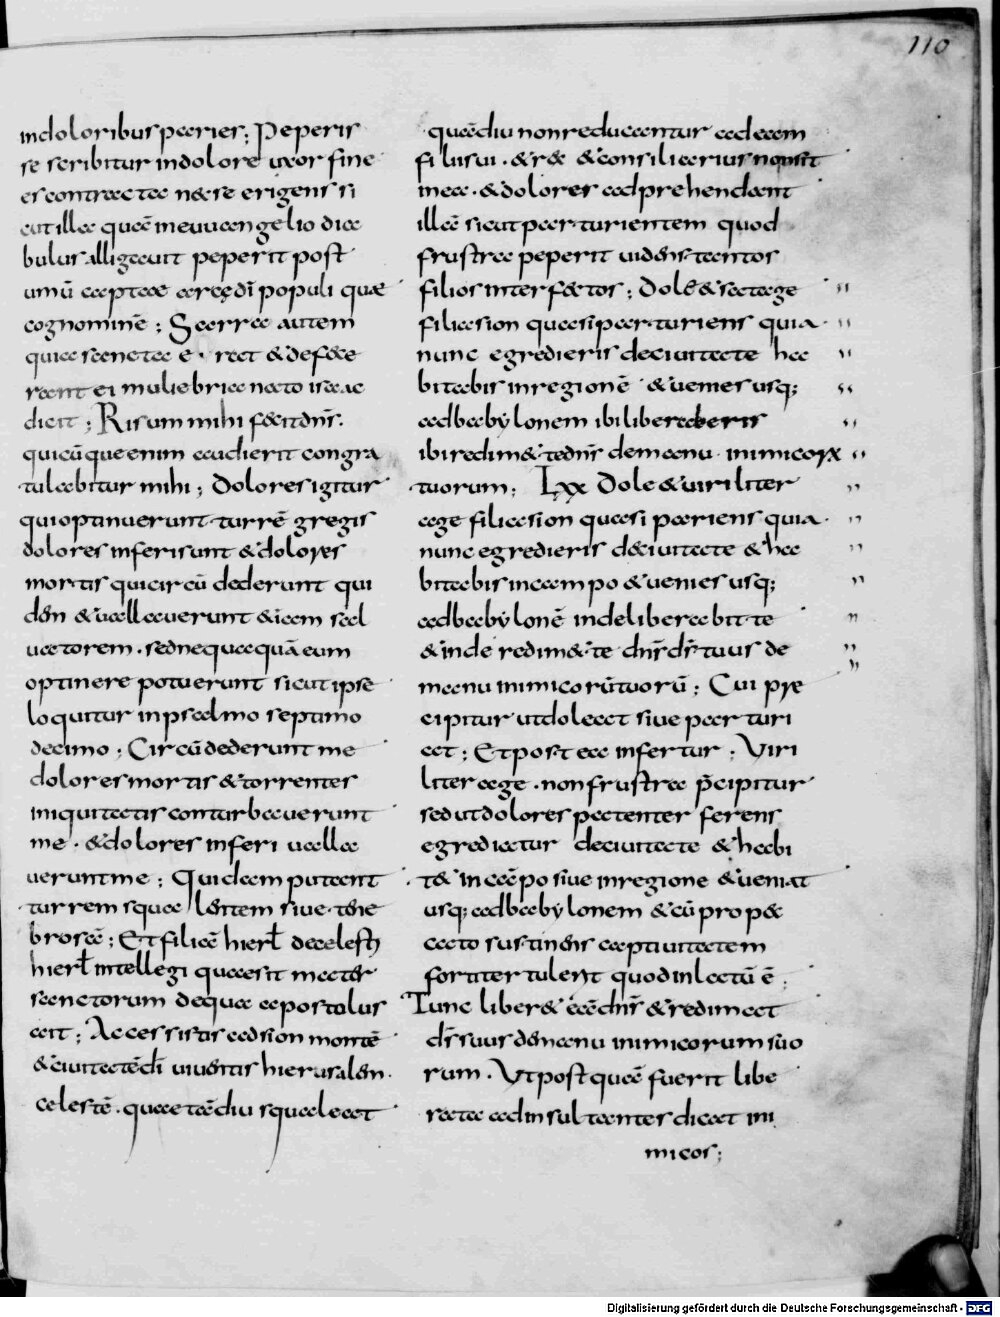 110
indoloribus paries; Peperis
se scribitur indolore uxor fine
es contracta n&se erigens si
cut illa quā in euuangelio dia
bulus alligauit peperit post
umū captaeę arcędī populi quæ
cognominē; Sarra autem
quia sancta ē. rect & defece
rant ei muliebria nato isaac
dicit; Risum mihi fecit dn̄s.
quicūque enim audierit congra
tulabitur mihi; Dolores igitur
qui optinuerunt turrē gregis
dolores inferi sunt & dolores
mortis qui circū dederunt qui
dem & uallauerunt &iam sal
uatorem. sed nequaquā eum
optinere potuerunt sicut ipse
loquitur in psalmo septimo
decimo; Circū dederunt me
dolores mortis & torrentes
iniquitatis conturbauerunt
me. & dolores inferi ualla
uerunt me; Quidam putant
turrem squalentem siue tene
brosā; Et filiā hierl̄ de caelesti
hierl̄ intellegi quae sit mater
sanctorum de qua apostolus
ait; Accessistis ad sion montē
& ciuitatē dī uiuentis hierusalem.
celestē. quae tādiu squaleat
quādiu non reducantur ad eam
filii sui. & rex & consiliarius non sit
in ea. & dolores adprehendant
illā sicut parturientem quod
frustra peperit uidens tantos
filios interfectos; Dole & satage
filia sion quasi parturiens quia
nunc egredieris de ciuitate & ha
bitabis in regionē & uenies usq;
ad babylonem ibi liberaberis
ibi redim& te dn̄s de manu inimicorum
tuorum; LXX Dole & uiriliter
age filia sion quasi pariens quia
nunc egredieris de ciuitate & ha
bitabis in campo & uenies usq;
ad babylonē inde liberabit te
& inde redim& te dn̄s ds̄ tuus de
manu inimicorū tuorū; Cui præ
cipitur ut doleat siue parturi
at; Et postea infertur; Viri
liter age. non frustra p̄cipitur
sed ut dolores patienter ferens
egrediatur de ciuitate & habi
t& in cāpo siue in regione & ueniat
usq; ad babylonem & cū propec
cato sustinens captiuitatem
fortiter tulerit quod inlatū ē;
Tunc liber& eā dn̄s & redimat
ds̄ suus de manu inimicorum suo
rum. Vt postquā fuerit libe
rata ad insultantes dicat ini
micos;
Digitalisierung gefördert durch die Deutsche Forschungsgemeinschaft - DFG